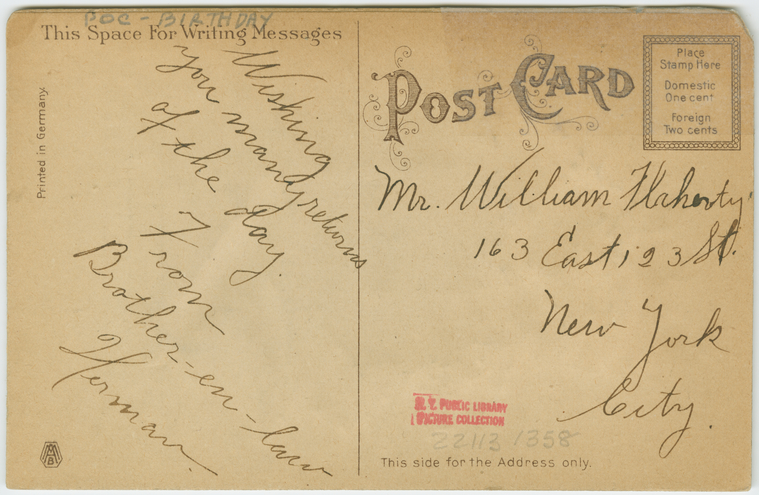 POC - BIRTHDAY
This Space For Writing Messages
Wishing
you many returns
of the day.
From
Brother-en-law
Herman.
Printed in Germany.
POST CARD
Place
Stamp Here
Domestic
One cent
Foreign
Two cents
Mr. William Flaherty
163 East 123 St.
New York
City.
N. Y. PUBLIC LIBRARY
PICTURE COLLECTION
22113 1358
This side for the Address only.